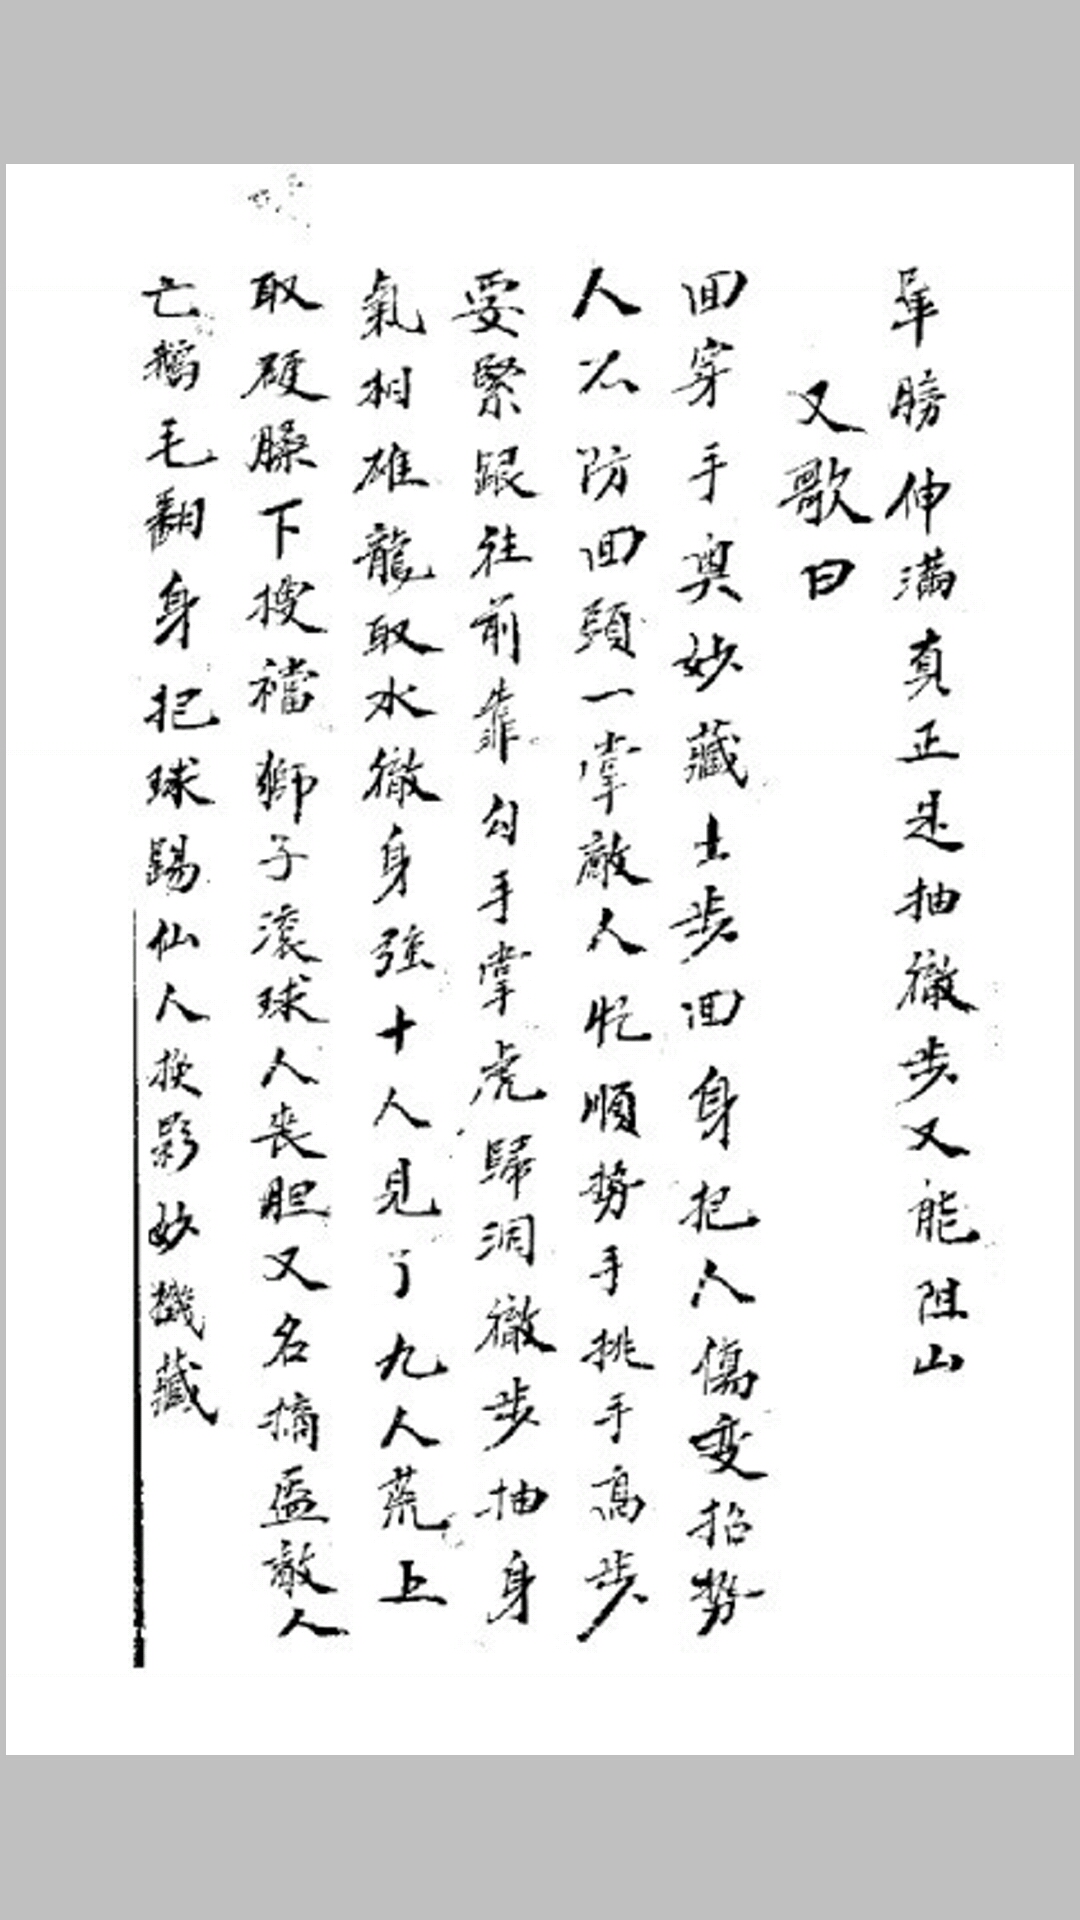 膀伸满真正是抽徹步又能阻山
又歌曰
回穿手奥妙藏土步回身把人傷变招势
人不防回頭一掌敵人忙順势手挑手高步
要緊跟往前靠勾手掌虎歸洞徹步抽身
氣相雄龍取水徹身強十人見了九人荒上
取硬臊下搜襠獅子滚球人丧胆又名摘盔敵人
亡鵝毛翻身把球踢仙人换影妙機藏